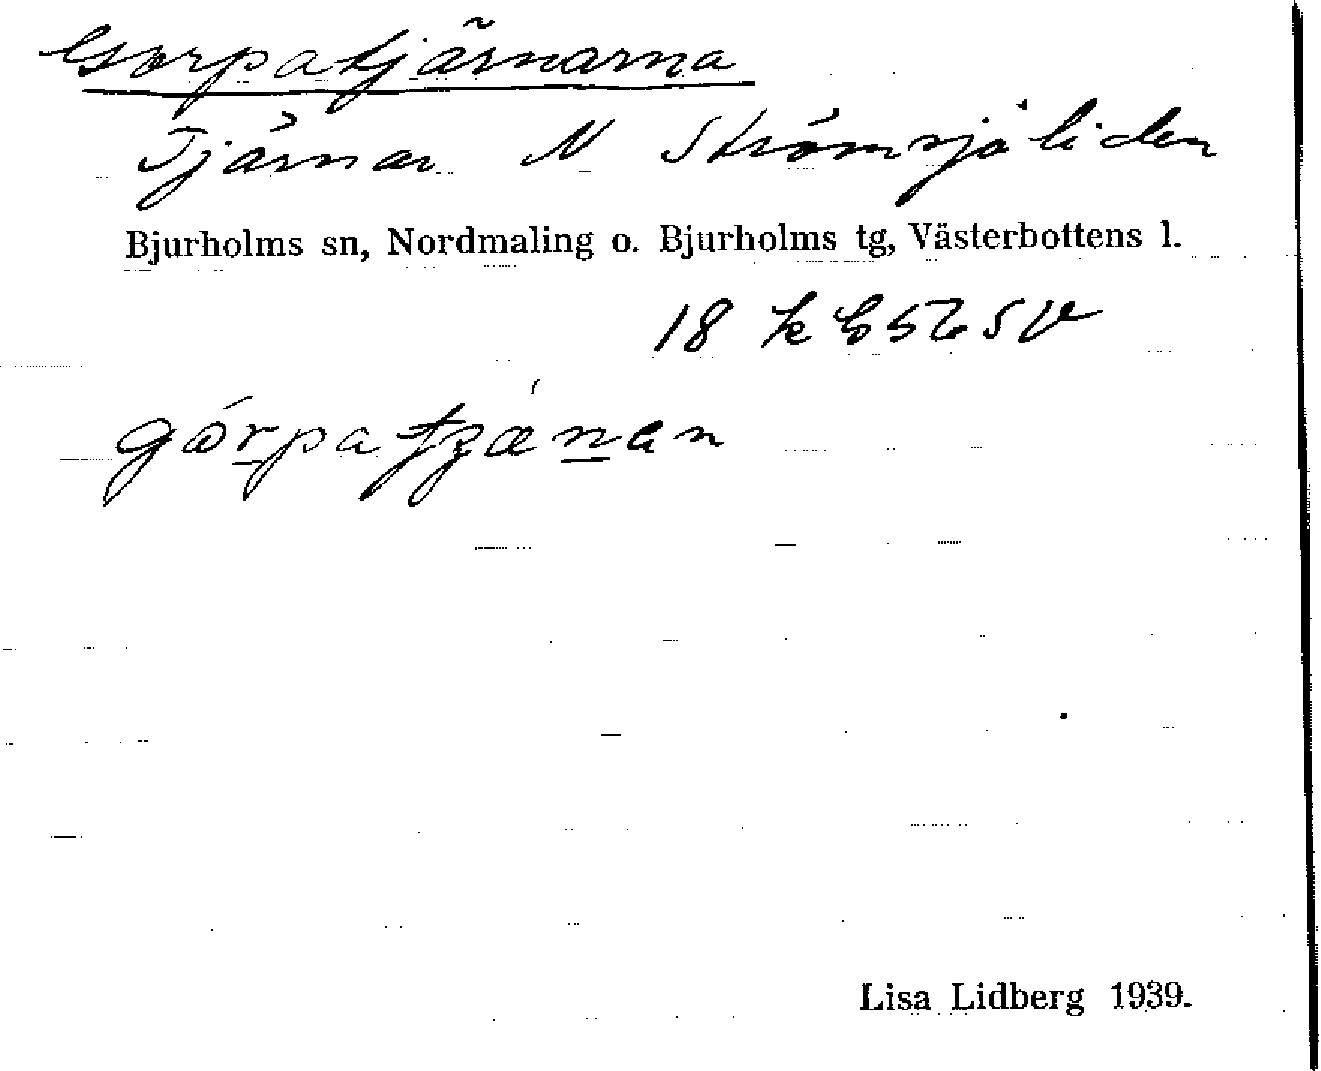 Gorpatjärnarna
Tjärnar N Strömsjöliden
Bjurholms sn, Nordmaling o. Bjurholms tg, Västerbottens l.
18 k
Lisa Lidberg 1939.